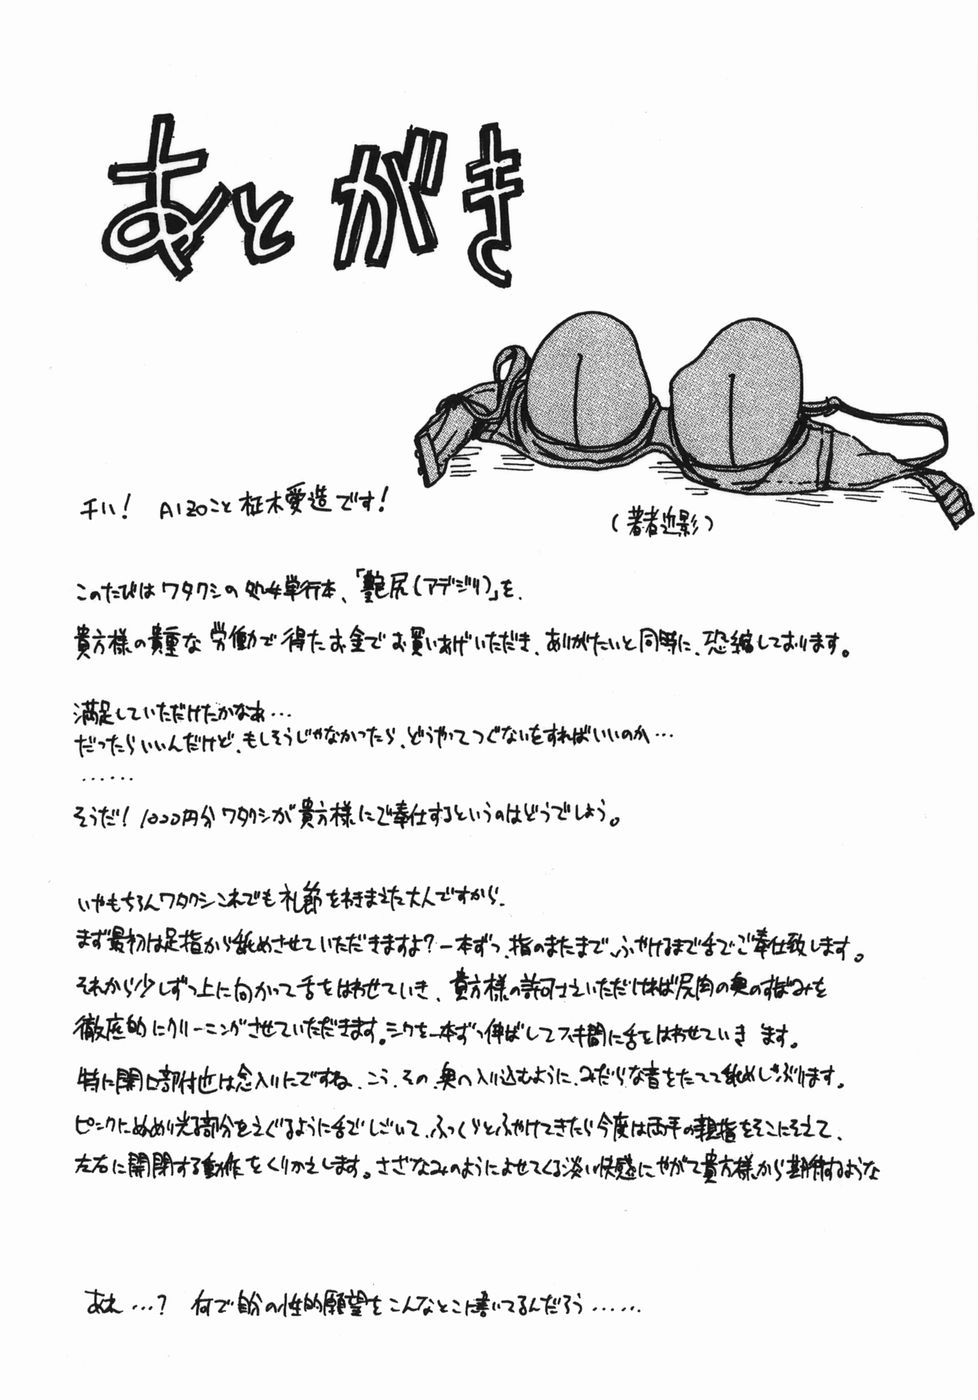 あとがき
チハ! AIZOこと柾木愛造です!
(著者近影)
このたびはワタクシの処女単行本、「艶尻(アデジリ)」を、
貴方様の貴重な労働で得たお金でお買いあげいただき、ありがたいと同時に、恐縮しております。
満足していただけたかなあ…
だったらいいんだけど、もしそうじゃなかったら、どうやってつぐないをすればいいのか…
……
そうだ! 1000円分ワタクシが貴方様にご奉仕するというのはどうでしょう。
いやもちろんワタクシこれでも礼節をわきまえた大人ですから、
まず最初は足指から舐めさせていただきますよ?一本ずつ、指のまたまで、ふやけるまで舌でご奉仕致します。
それから少しずつ上に向かって舌をはわせていき、貴方様の許可さえいただければ尻肉の奥のすぼみを
徹底的にクリーニングさせていただきます。シワを一本ずつ伸ばしてスキ間に舌をはわせていき ます。
特に開口部付近は念入りにですね、こう、その、奥へ入り込むように、みだらな音をたてて舐めしゃぶります。
ピンクにぬめり光る部分をえぐるように舌でしごいて、ふっくらとふやけてきたら今度は両手の親指をそこにそえて、
左右に開閉する動作をくりかえします。さざなみのようによせてくる淡い快感にやがて貴方様から期待するような
あれ…? 何で自分の性的願望をこんなとこに書いてるんだろう……